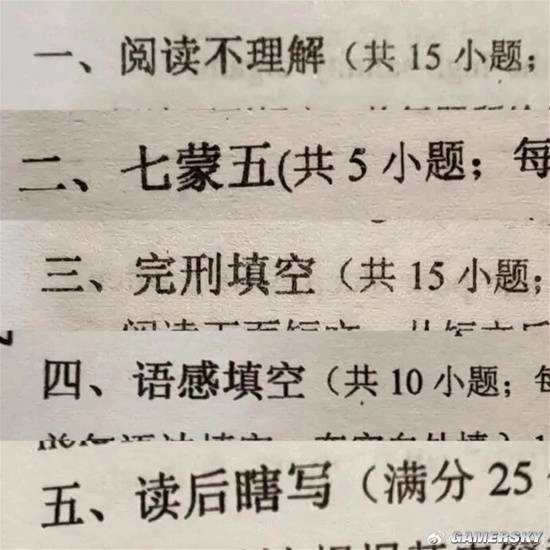 一、阅读不理解（共 15 小题；
二、七蒙五(共 5 小题；每
三、完刑填空（共 15 小题；
四、语感填空（共 10 小题；每
五、读后瞎写（满分 25
GAMERSKY